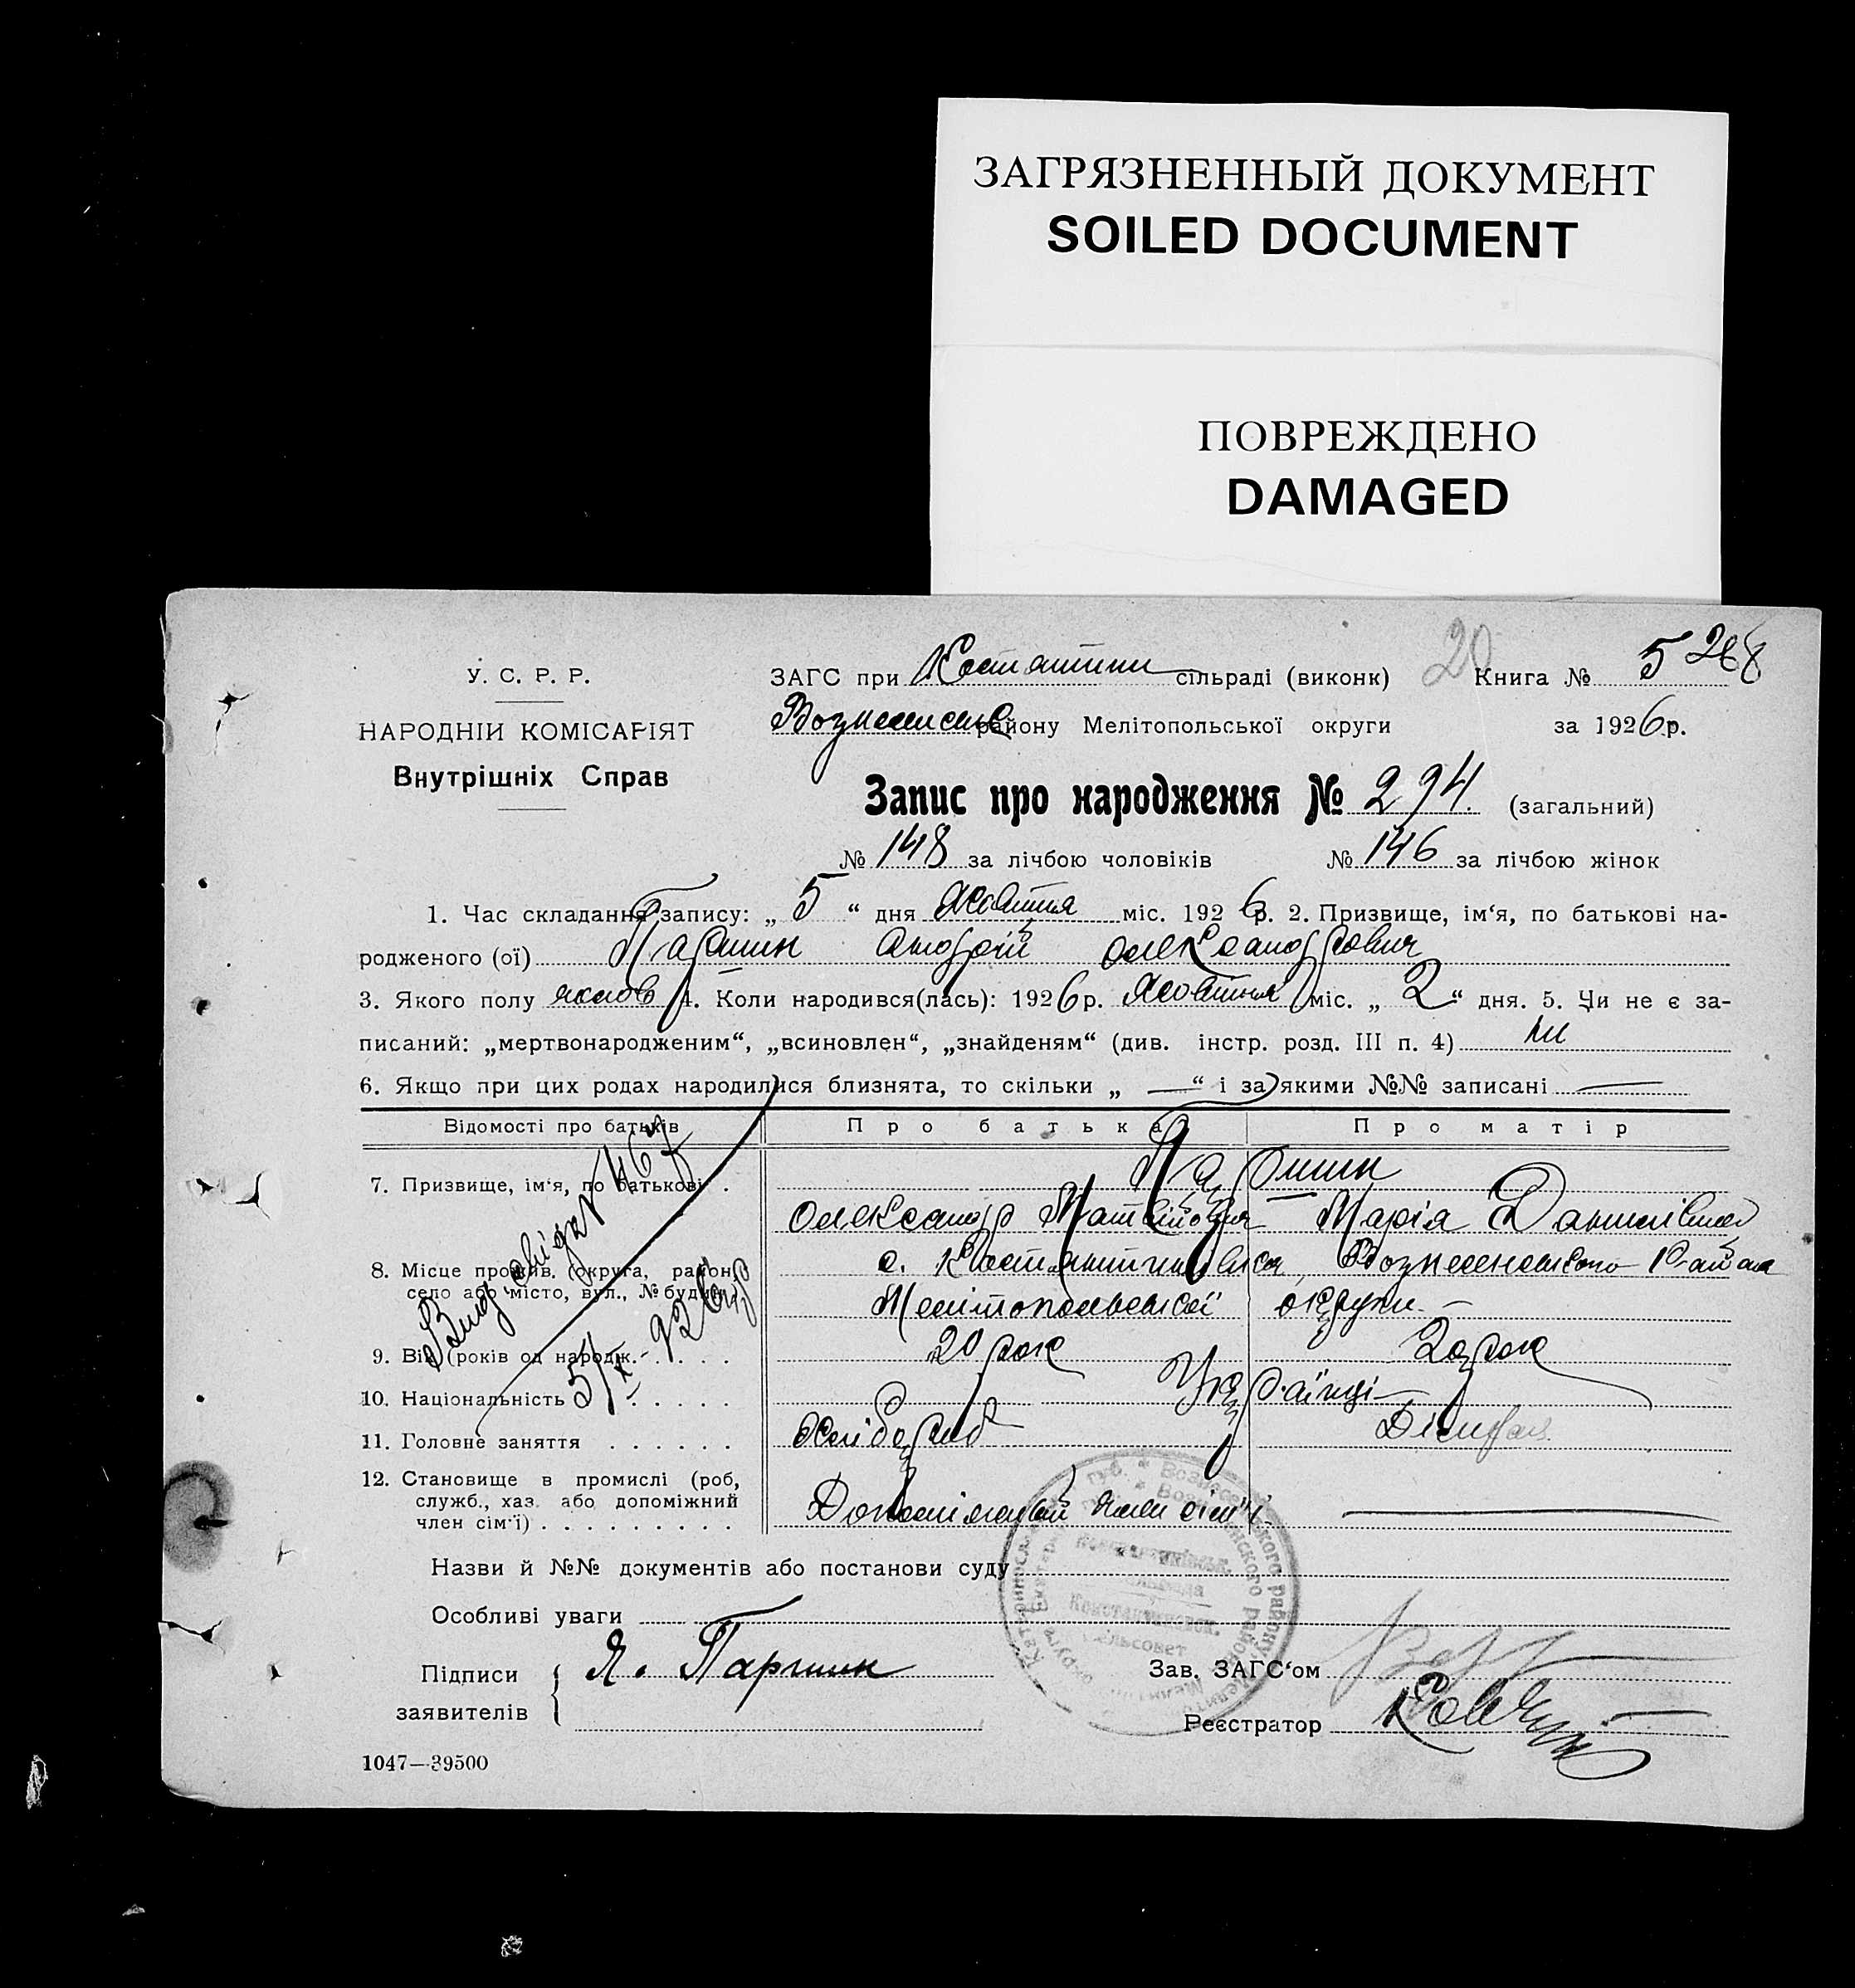 ЗАГРЯЗНЕННЫЙ ДОКУМЕНТ
SOILED DOCUMENT
ПОВРЕЖДЕНО
DAMAGED
У. С. Р. Р.
НАРОДНІЙ КОМІСАРІЯТ
Внутрішніх Справ
20
ЗАГС при Костантини сільраді (виконк) Книга № 5 268
району Мелітопольської округи за 1926 р.
Запис про народження № 294. (загальний)
№ 148 за лічбою чоловіків № 146 за лічбою жінок
1. Час складання запису: „ 5 “ дня Жовтня міс. 1926 р. 2. Призвище, ім‘я, по батькові на-
родженого (ої) Паршин Андрій Олександрович
3. Якого полу 4. Коли народився(лась): 1926 р. Жовтня міс. „ 2 “ дня. 5. Чи не є за-
писаний: „мертвонародженим“, „всиновлен“, „знайденям“ (див. інстр. розд. III п. 4) ні
6. Якщо при цих родах народилися близнята, то скільки „ — “ і за якими №№ записані —
Відомості про батьків Про батька Про матір
7. Призвище, ім‘я, по батькові . Паршин
Олександр Матвійович Марія Данилівна
8. Місце прожив. (округа, район, с. Костянтинівка, Вознесенського Району
село або місто, вул., № будин.) Мелітопольської округи. —
9. Вік (років од народж. . . . . . 20 рок 20 рок
10. Національність . . . . . . Українці
11. Головне заняття . . . . . . Хлібороб
12. Становище в промислі (роб,
служб., хаз. або допоміжний
член сім‘ї) . . . . . . . . . Допоміжний член сім'ї —
Вид. свідот № 467
5/X - 926 р
Назви й №№ документів або постанови суду
Особливі уваги
Підписи Я. Паршин Зав. ЗАГС‘ом
заявителів Реєстратор
1047—39500